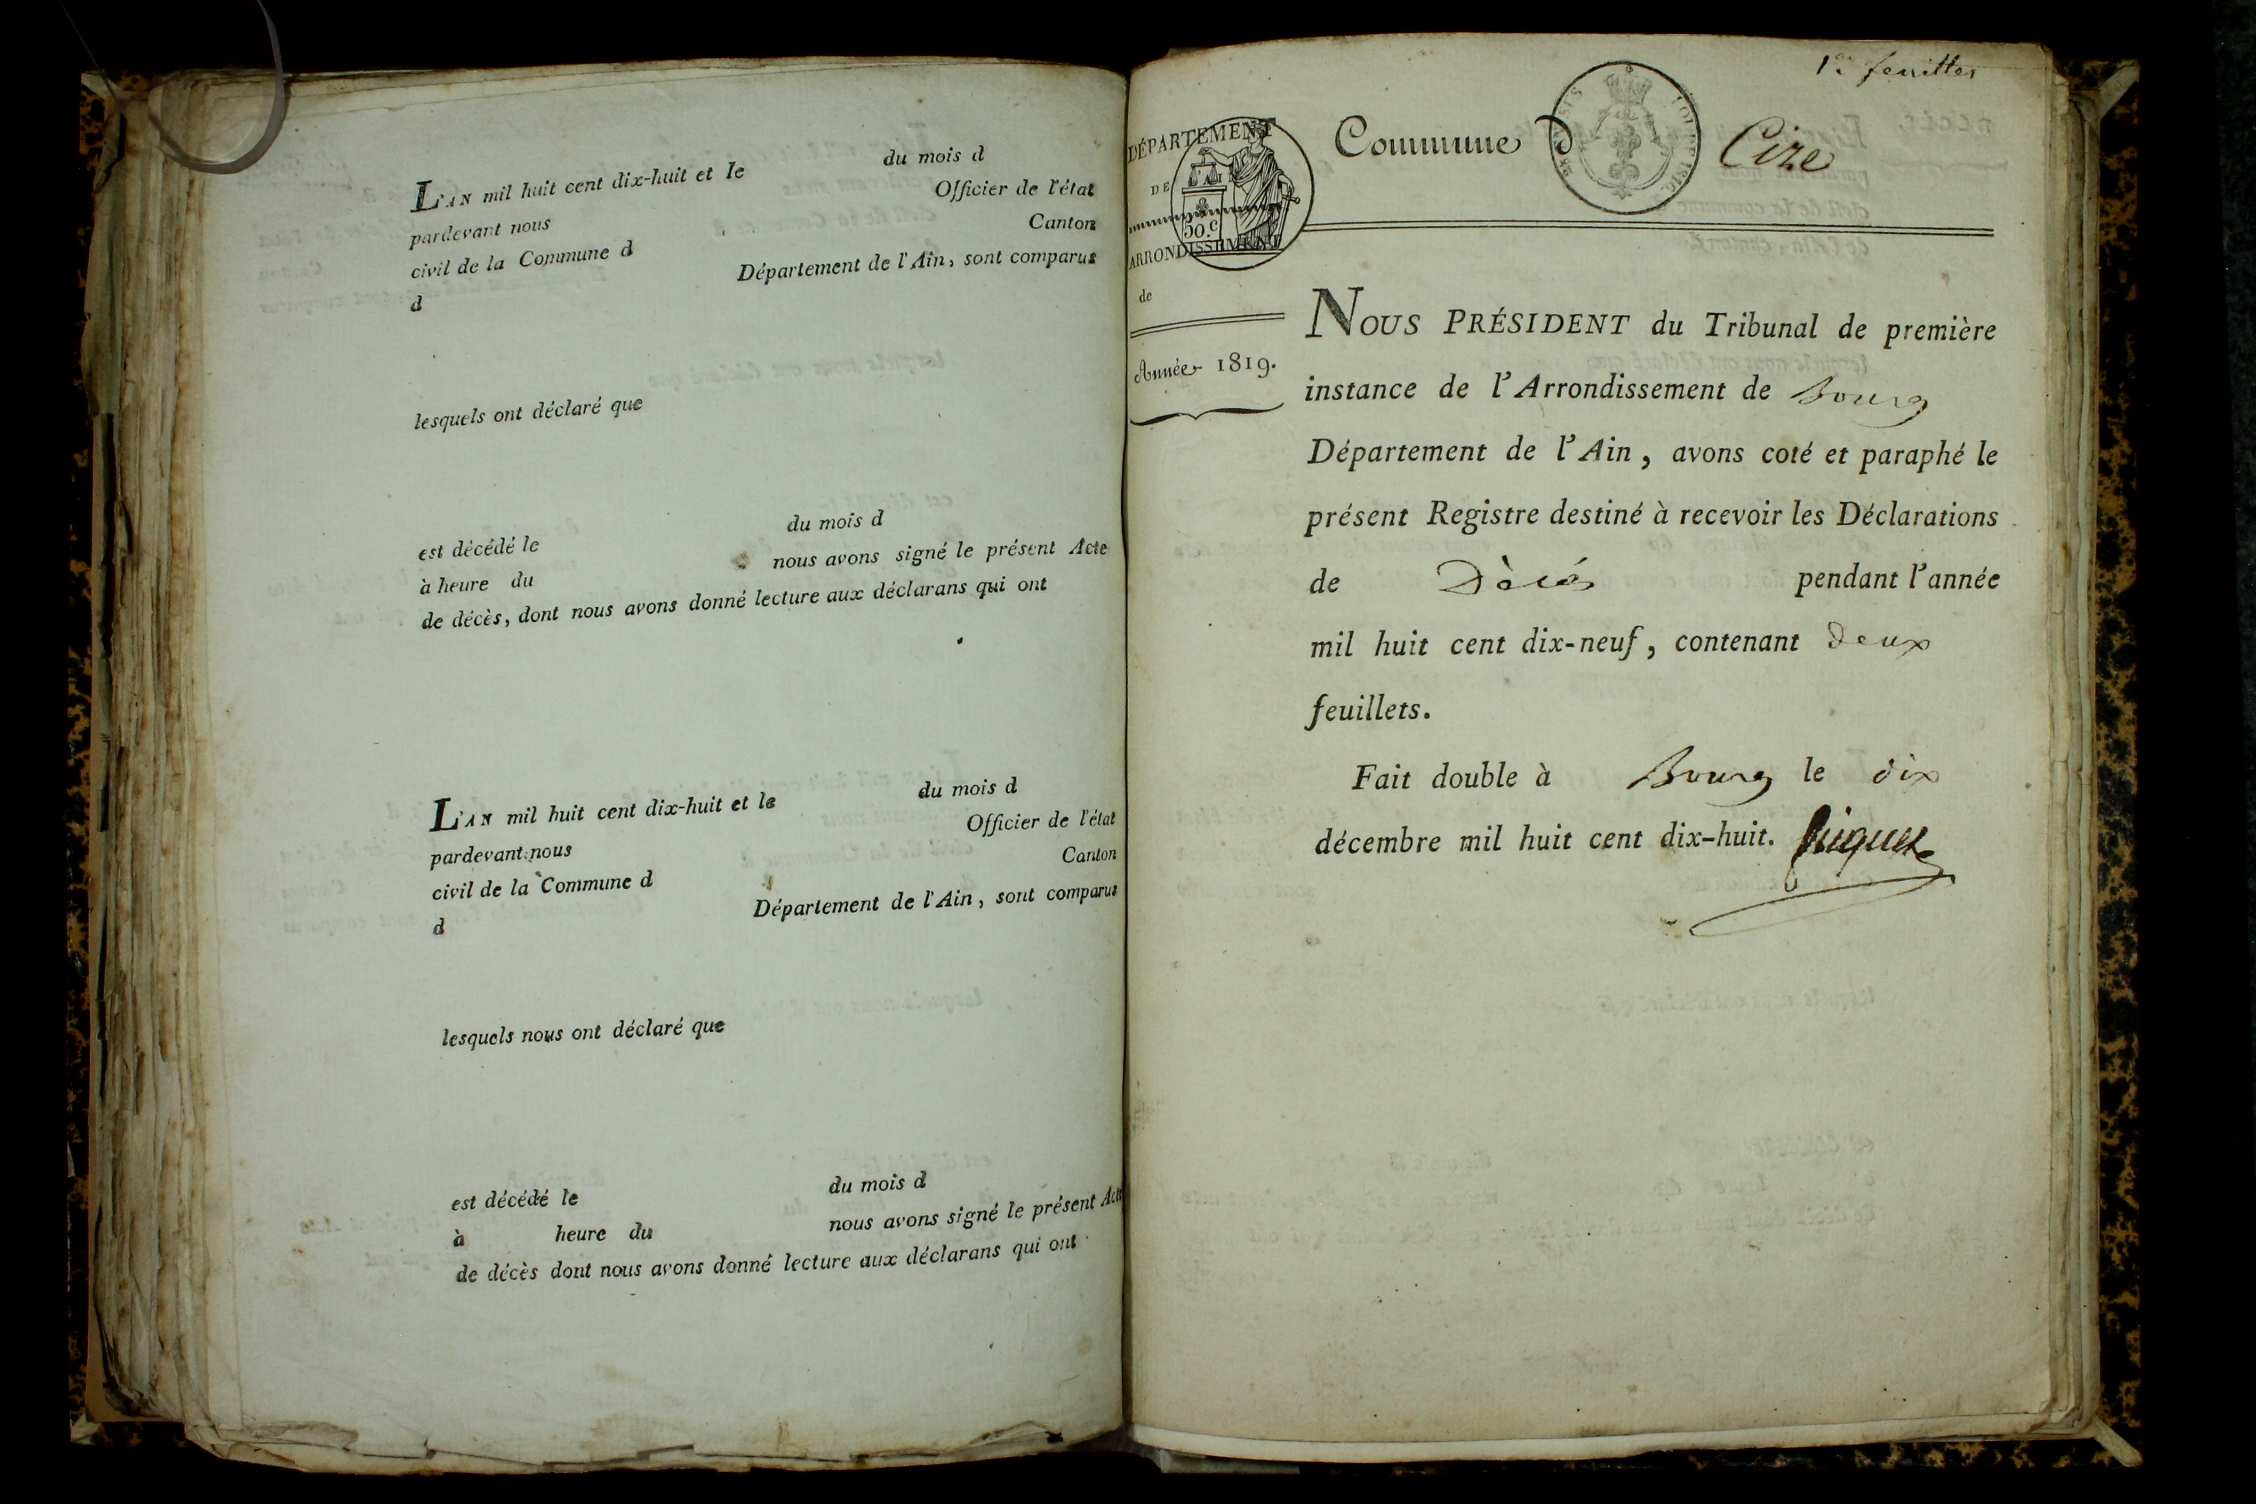 L'AN mil huit cent dix-huit et le du mois d
pardevant nous Officier de l'état
civil de la Commune d Canton
d Département de l'Ain, sont comparus
lesquels ont déclaré que
est décédé le du mois d
à heure du nous avons signé le présent Acte
de décès, dont nous avons donné lecture aux déclarans qui ont
L'AN mil huit cent dix-huit et le du mois d
pardevant nous Officier de l'état
civil de la Commune d Canton
d Département de l'Ain, sont comparus
lesquels nous ont déclaré que
est décédé le du mois d
à heure du nous avons signé le présent Acte
de décès dont nous avons donné lecture aux déclarans qui ont
DÉPARTEMENT
DE
L'AIN
50.c
ARRONDISSEMENT
de
Année 1819.
Commune d Cize
NOUS PRÉSIDENT du Tribunal de première
instance de l'Arrondissement de Bourg
Département de l'Ain, avons coté et paraphé le
présent Registre destiné à recevoir les Déclarations
de Décés pendant l'année
mil huit cent dix-neuf, contenant deux
feuillets.
Fait double à Bourg le dix
décembre mil huit cent dix-huit.